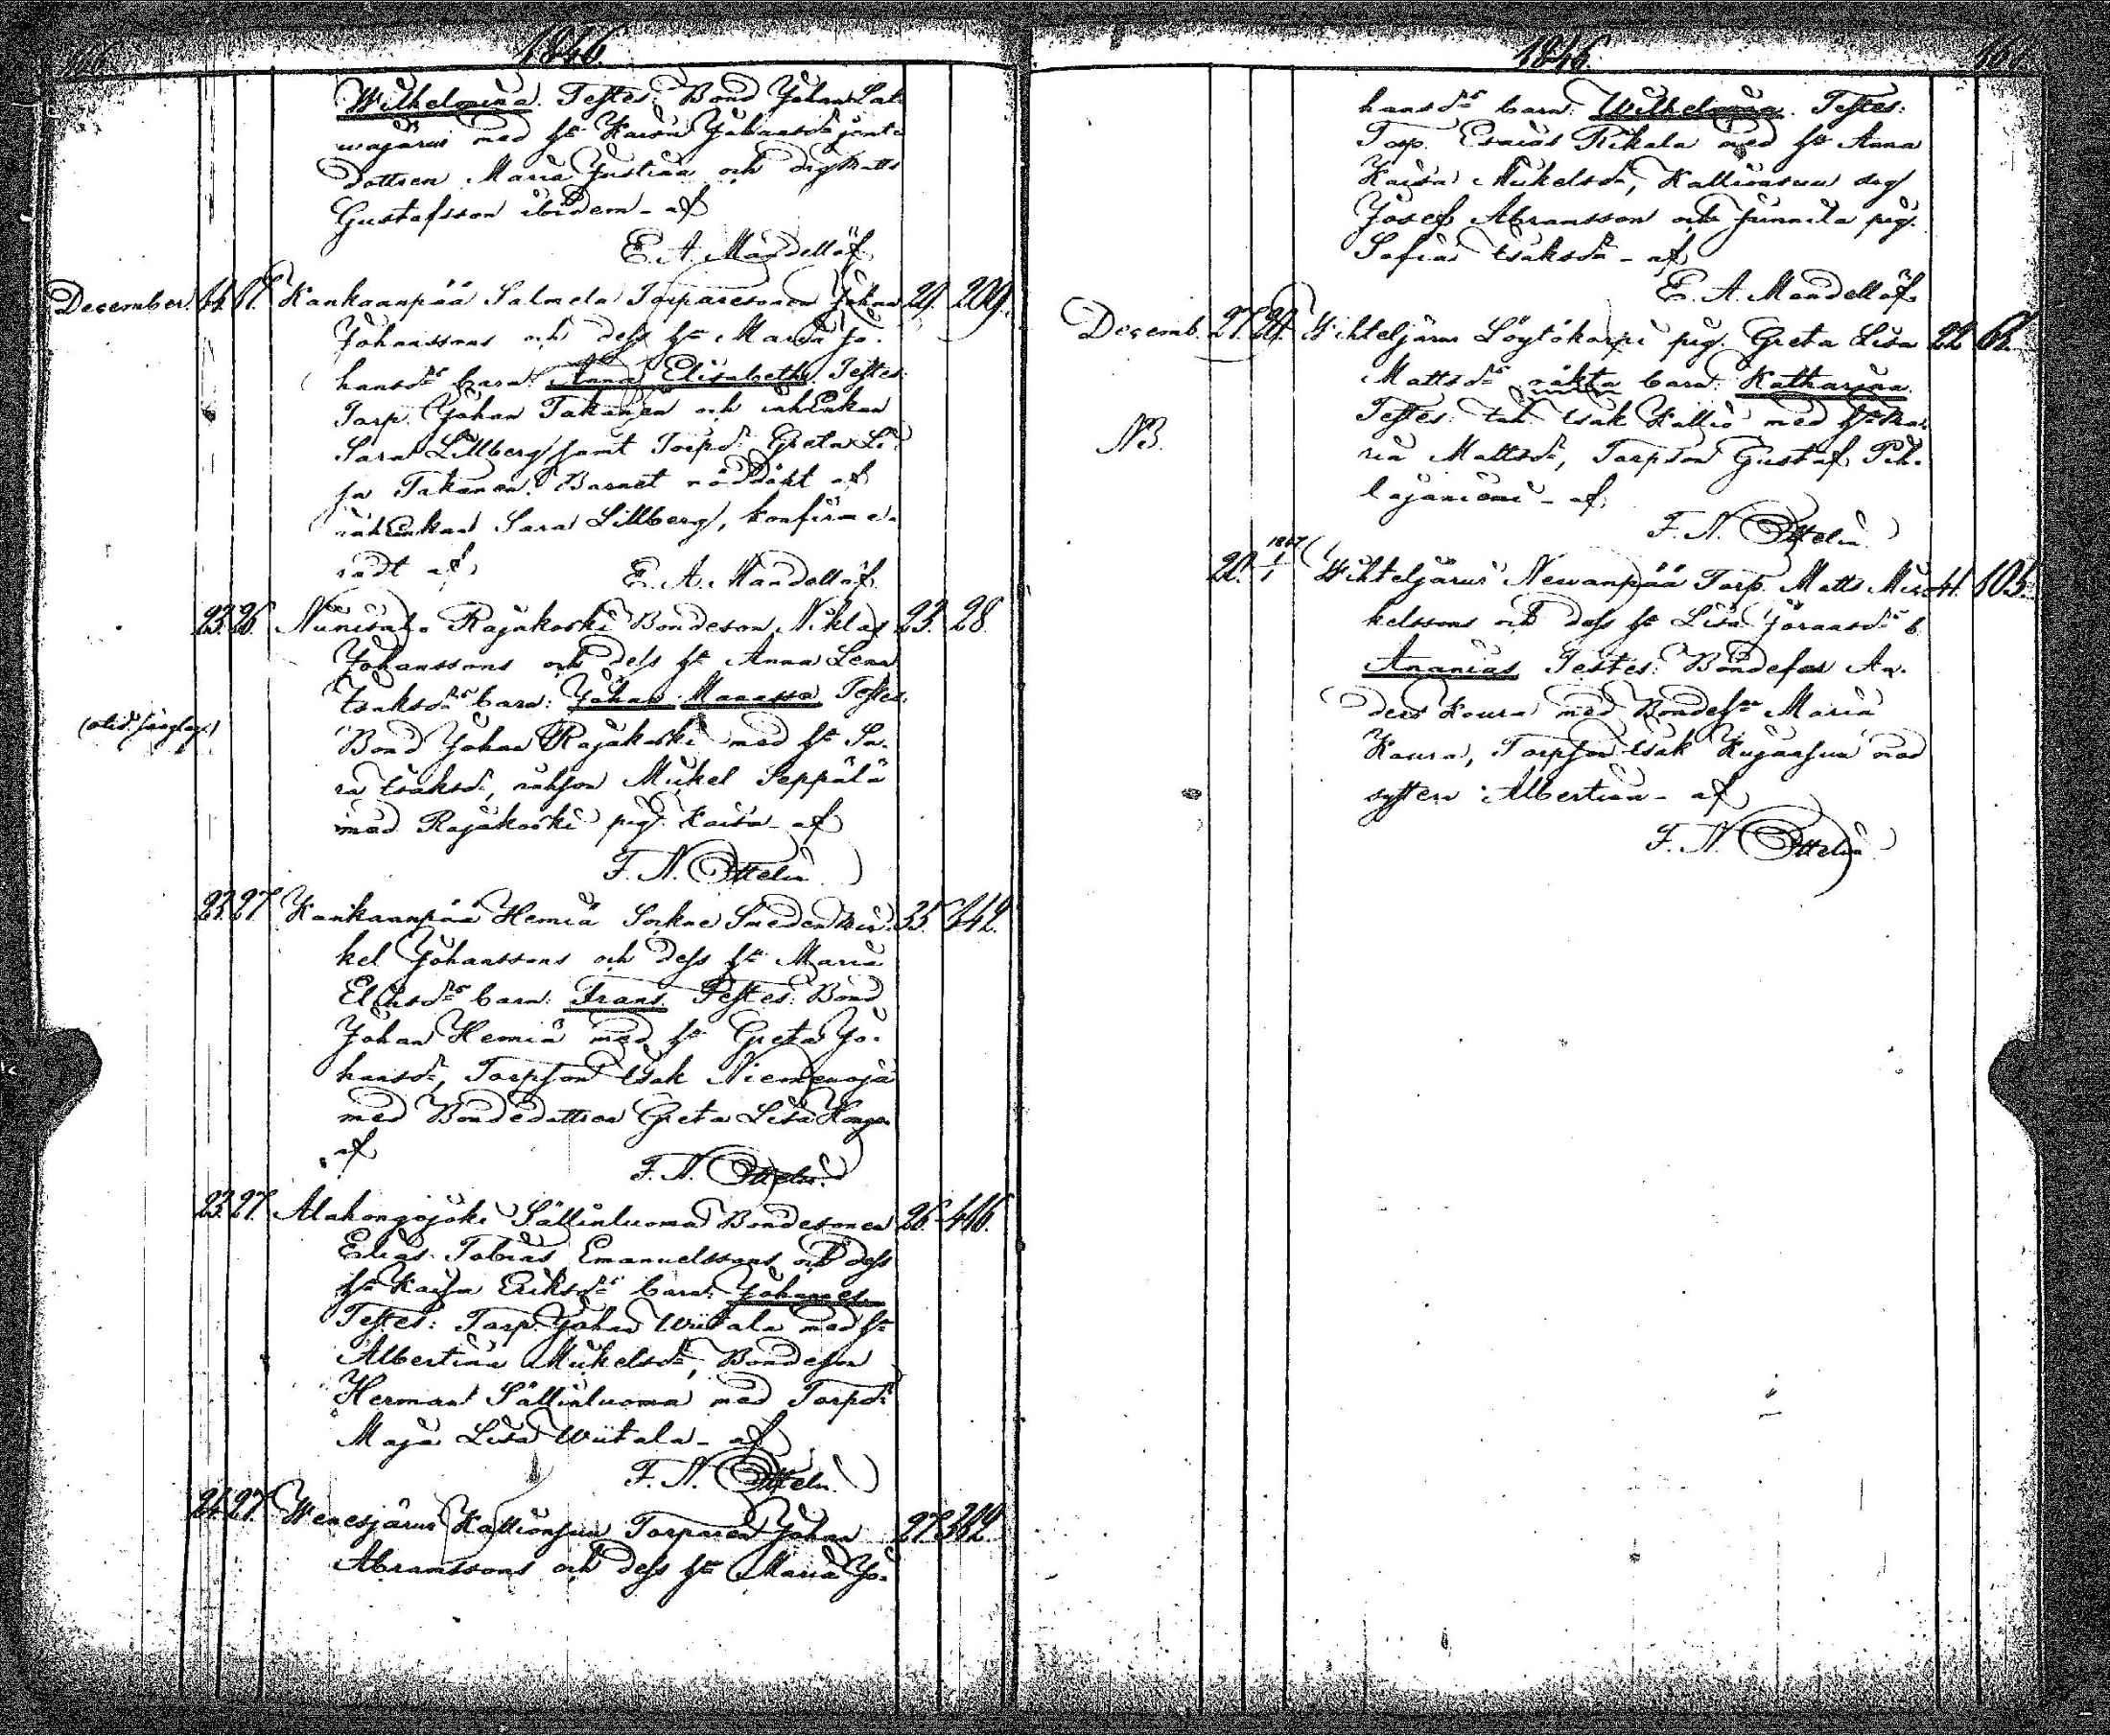 1846.
Wilhelmina. Testes: Bond Johan Sal-
majärvi med h:u Kaisa Johansdr samt
dottren Maria Justina och drg Matts
Gustafsson ibidem - af
E. A. Mandellöf.
December. 14. 17. Kankaanpää Salmela Torparesonen Johan 29. 209.
Johanssons och dess h:u Maria Jo-
hansdrs barn: Anna Elisabeth. Testes:
Torp. Johan Takanen och inh:enkan
Sara Lillberg samt Torpd: Greta Li-
sa Takanen. Barnet nöddöpt af
inh:enkan Sara Lillberg, konfirme-
radt af
E. A. Mandellöf.
23. 26. Niinisalo Rajakoski Bondeson Niklas 23. 28.
Johanssons och dess h:u Anna Lena
Isaksdrs barn: Johan Manassa. Testes:
Bond Johan Rajakoski med h:u Sa-
ra Isaksd:, inhson Mikel Seppälä
med Rajakoski pig. Kaisa - af
F. N. Ottelin.
27. Kankaanpää Hemiä Sockne Smeden Mi- 35. 342.
kel Johanssons och dess h:u Maria
Eliasdrs barn: Frans. Testes: Bond
Johan Hemiä med h:u Greta Jo-
hansd:, Torpson Isak Niemenoja
med Bondedottren Greta Lisa Hongo
af
F. N. Ottelin.
23. 27. Alahongojoki Sällinluoma Bondesonen 26. 416.
Elias Tobias Emanuelssons och dess
h:u Kaisa Eriksdrs barn: Johannes.
Testes: Torp. Johan Wiitala med h:u
Albertina Mikelsd:, Bondeson
Herman Sällinluoma med Torpd:
Maja Lisa Wiitala - af
F. N. Ottelin.
27. Wenesjärvi Kallionsuu Torparen Johan 27. 362.
Abramssons och dess h:u Maria Jo-
1846.
hansdrs barn: Wilhelmina. Testes:
Torp. Esaias Rikala med h:u Anna
Kaisa Mikelsd:, Kallionsuu drg
Josef Abramsson och Junnila pig.
Sofia Isaksd: - af
E. A. Mandellöf.
Decemb. 27. 29. Wihteljärvi Löytökorpi pig. Greta Lisa 22. 62.
Mattsdrs oäkta barn: Katharina.
NB. Testes: Inh. Isak Kallio med h:u Ma-
ria Mattsd:, Torpson Gustaf Pih-
lajaniemi - af
F. N. Ottelin.
1847
1/1 Wihteljärvi Newanpää Torp. Matts Mi- 41. 105.
kelssons och dess h:u Lisa Göransdrs b.
Ananias. Testes: Bondeson An-
ders Koura med Bondeh:u Maria
Koura, Torpson Isak Kujansuu med
systern Albertina - af
F. N. Ottelin.